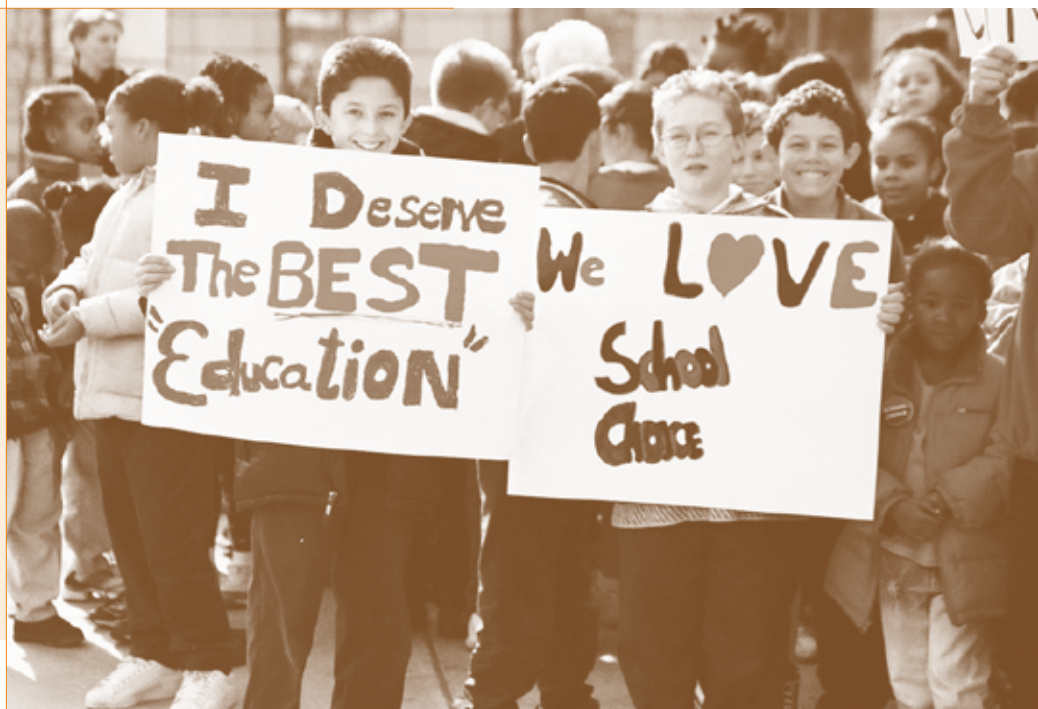 I Deserve
The BEST
"Education"
We LOVE
School
Choice